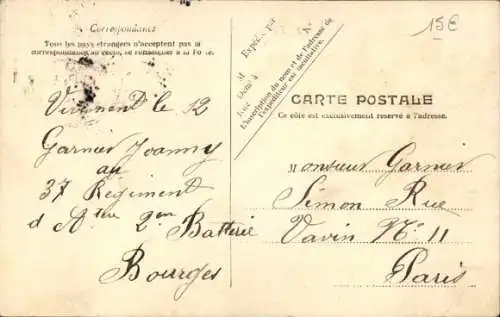 Correspondance
Tous les pays étrangers n'acceptent pas la
correspondance au recto, se renseigner à la Poste.
Vivement le 12
Garnier Joanny
au
37 Régiment
d'Atrie 2em
Batterie
Bourges
Expédié par
M
Rue
L'inscription du nom et de l'adresse de
l'expéditeur est facultative.
15E
CARTE POSTALE
Ce côté est exclusivement réservé à l'adresse.
Monsieur Garnier
Simon Rue
Vavin No 11
Paris